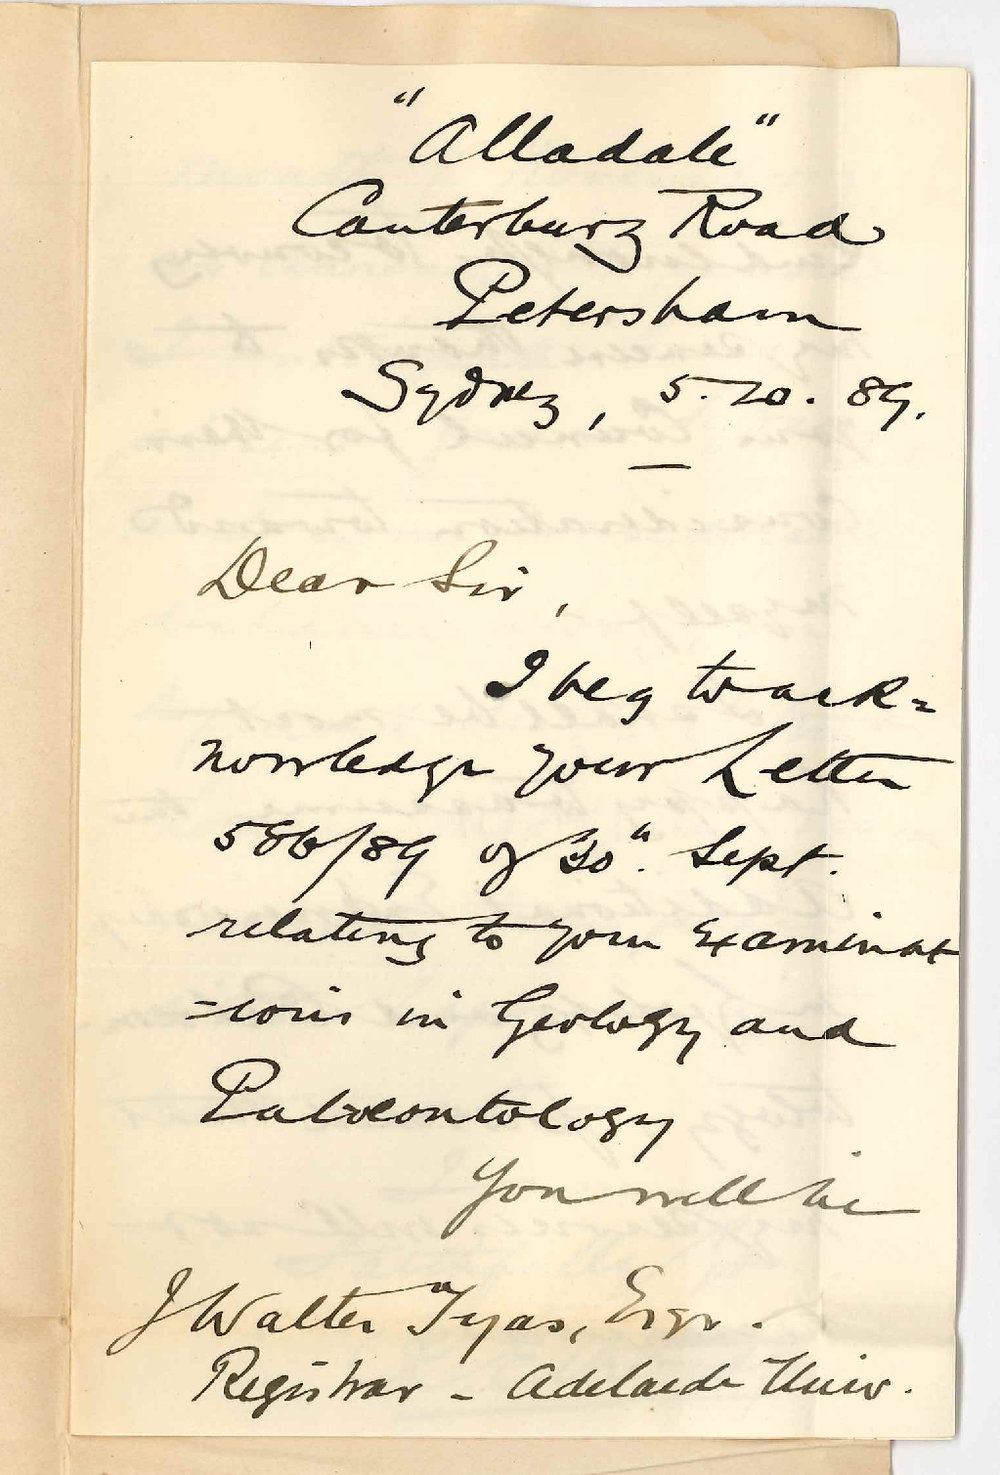 "Alladale"
Canterbury Road
Petersham
Sydney, 5.10.89.
Dear Sir,
I beg to ack=
nowledge your Letter
586/89 of 30". Sept.
relating to your Examinat
=ions in Geology and
Palæontology
You will be
J Walter Tyas, Esqr.
Registrar - Adelaide Univ.